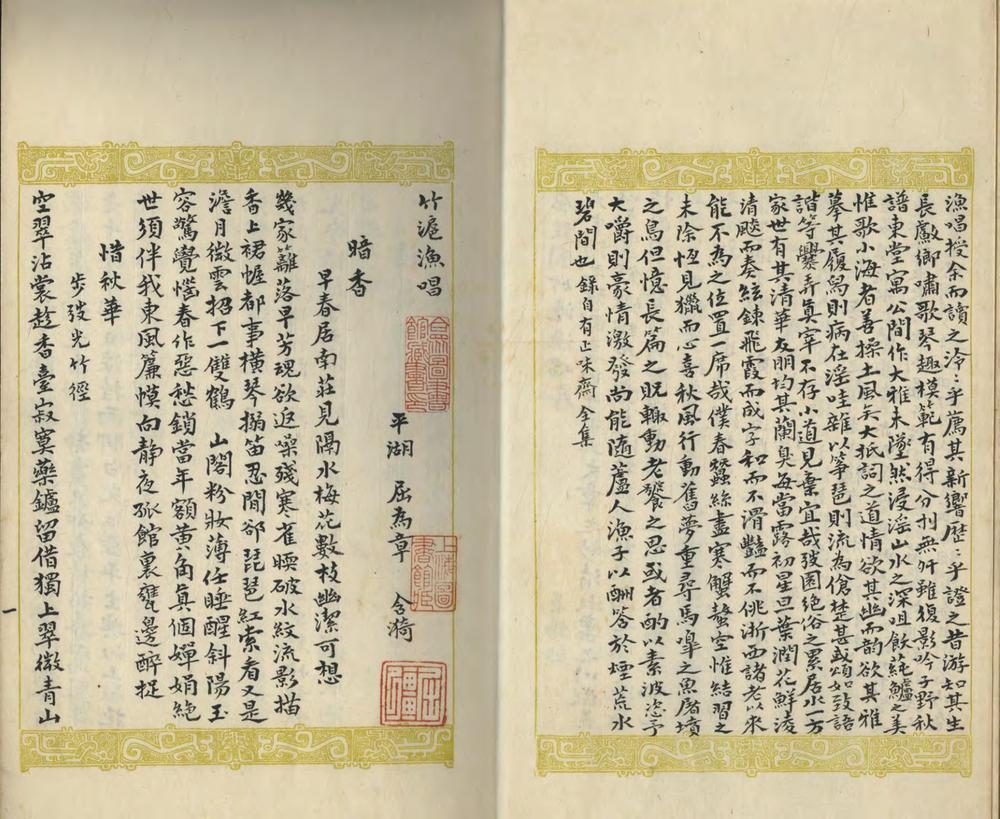 漁唱授余而讀之泠〻乎薦其新響歷〻乎證之昔游知其生
長嚴鄉嘯歌琴趣模範有得分刌無忒雖復影吟子野秋
譜東堂寓公間作大雅未墜然浸淫山水之深咀飲蒓鱸之美
惟歌小海者善操土風矣大抵詞之道情欲其幽而韵欲其雅
摹其履舄則病在淫哇雜以箏琶則流為傖楚甚或頌如㱾語
諧等爨弄真宰不存小道見棄宜哉弢園絕俗之累居水一方
家世有其清華友朋均其蘭臭每當露初星旦葉潤花鮮淩
清飈而奏絃鍊飛霞而成字和而不渭豔而不佻浙西諸老以來
能不為之位置一席哉僕春蠶絲盡寒蟹螯空惟結習之
未除恆見獵而心喜秋風行動舊夢重尋馬嘷之魚屠墳
之鳥但憶長篇之貺輒動老饕之思或者酌以素波恣予
大嚼則豪情激發尚能隨蘆人漁子以酬答於煙荒水
碧間也 錄自有正味齋全集
竹滬漁唱
平湖 屈為章 含漪
暗香
早春居南莊見隔水梅花數枝幽潔可想
幾家籬落早芳魂欲返噪殘寒雀暝破水紋流影描
香上裙幄都事橫琴搦笛忍閒卻琵琶紅索看又是
澹月微雲招下一雙鶴 山閣粉妝薄任睡醒斜陽玉
容驚覺惱春作惡愁鎖當年額黃角真個嬋娟絕
世須伴我東風簾幙向靜夜孤館裏甕邊醉捉
惜秋華
步弢光竹徑
空翠沾裳趁香臺寂寞藥鑪留借獨上翠微青山
一